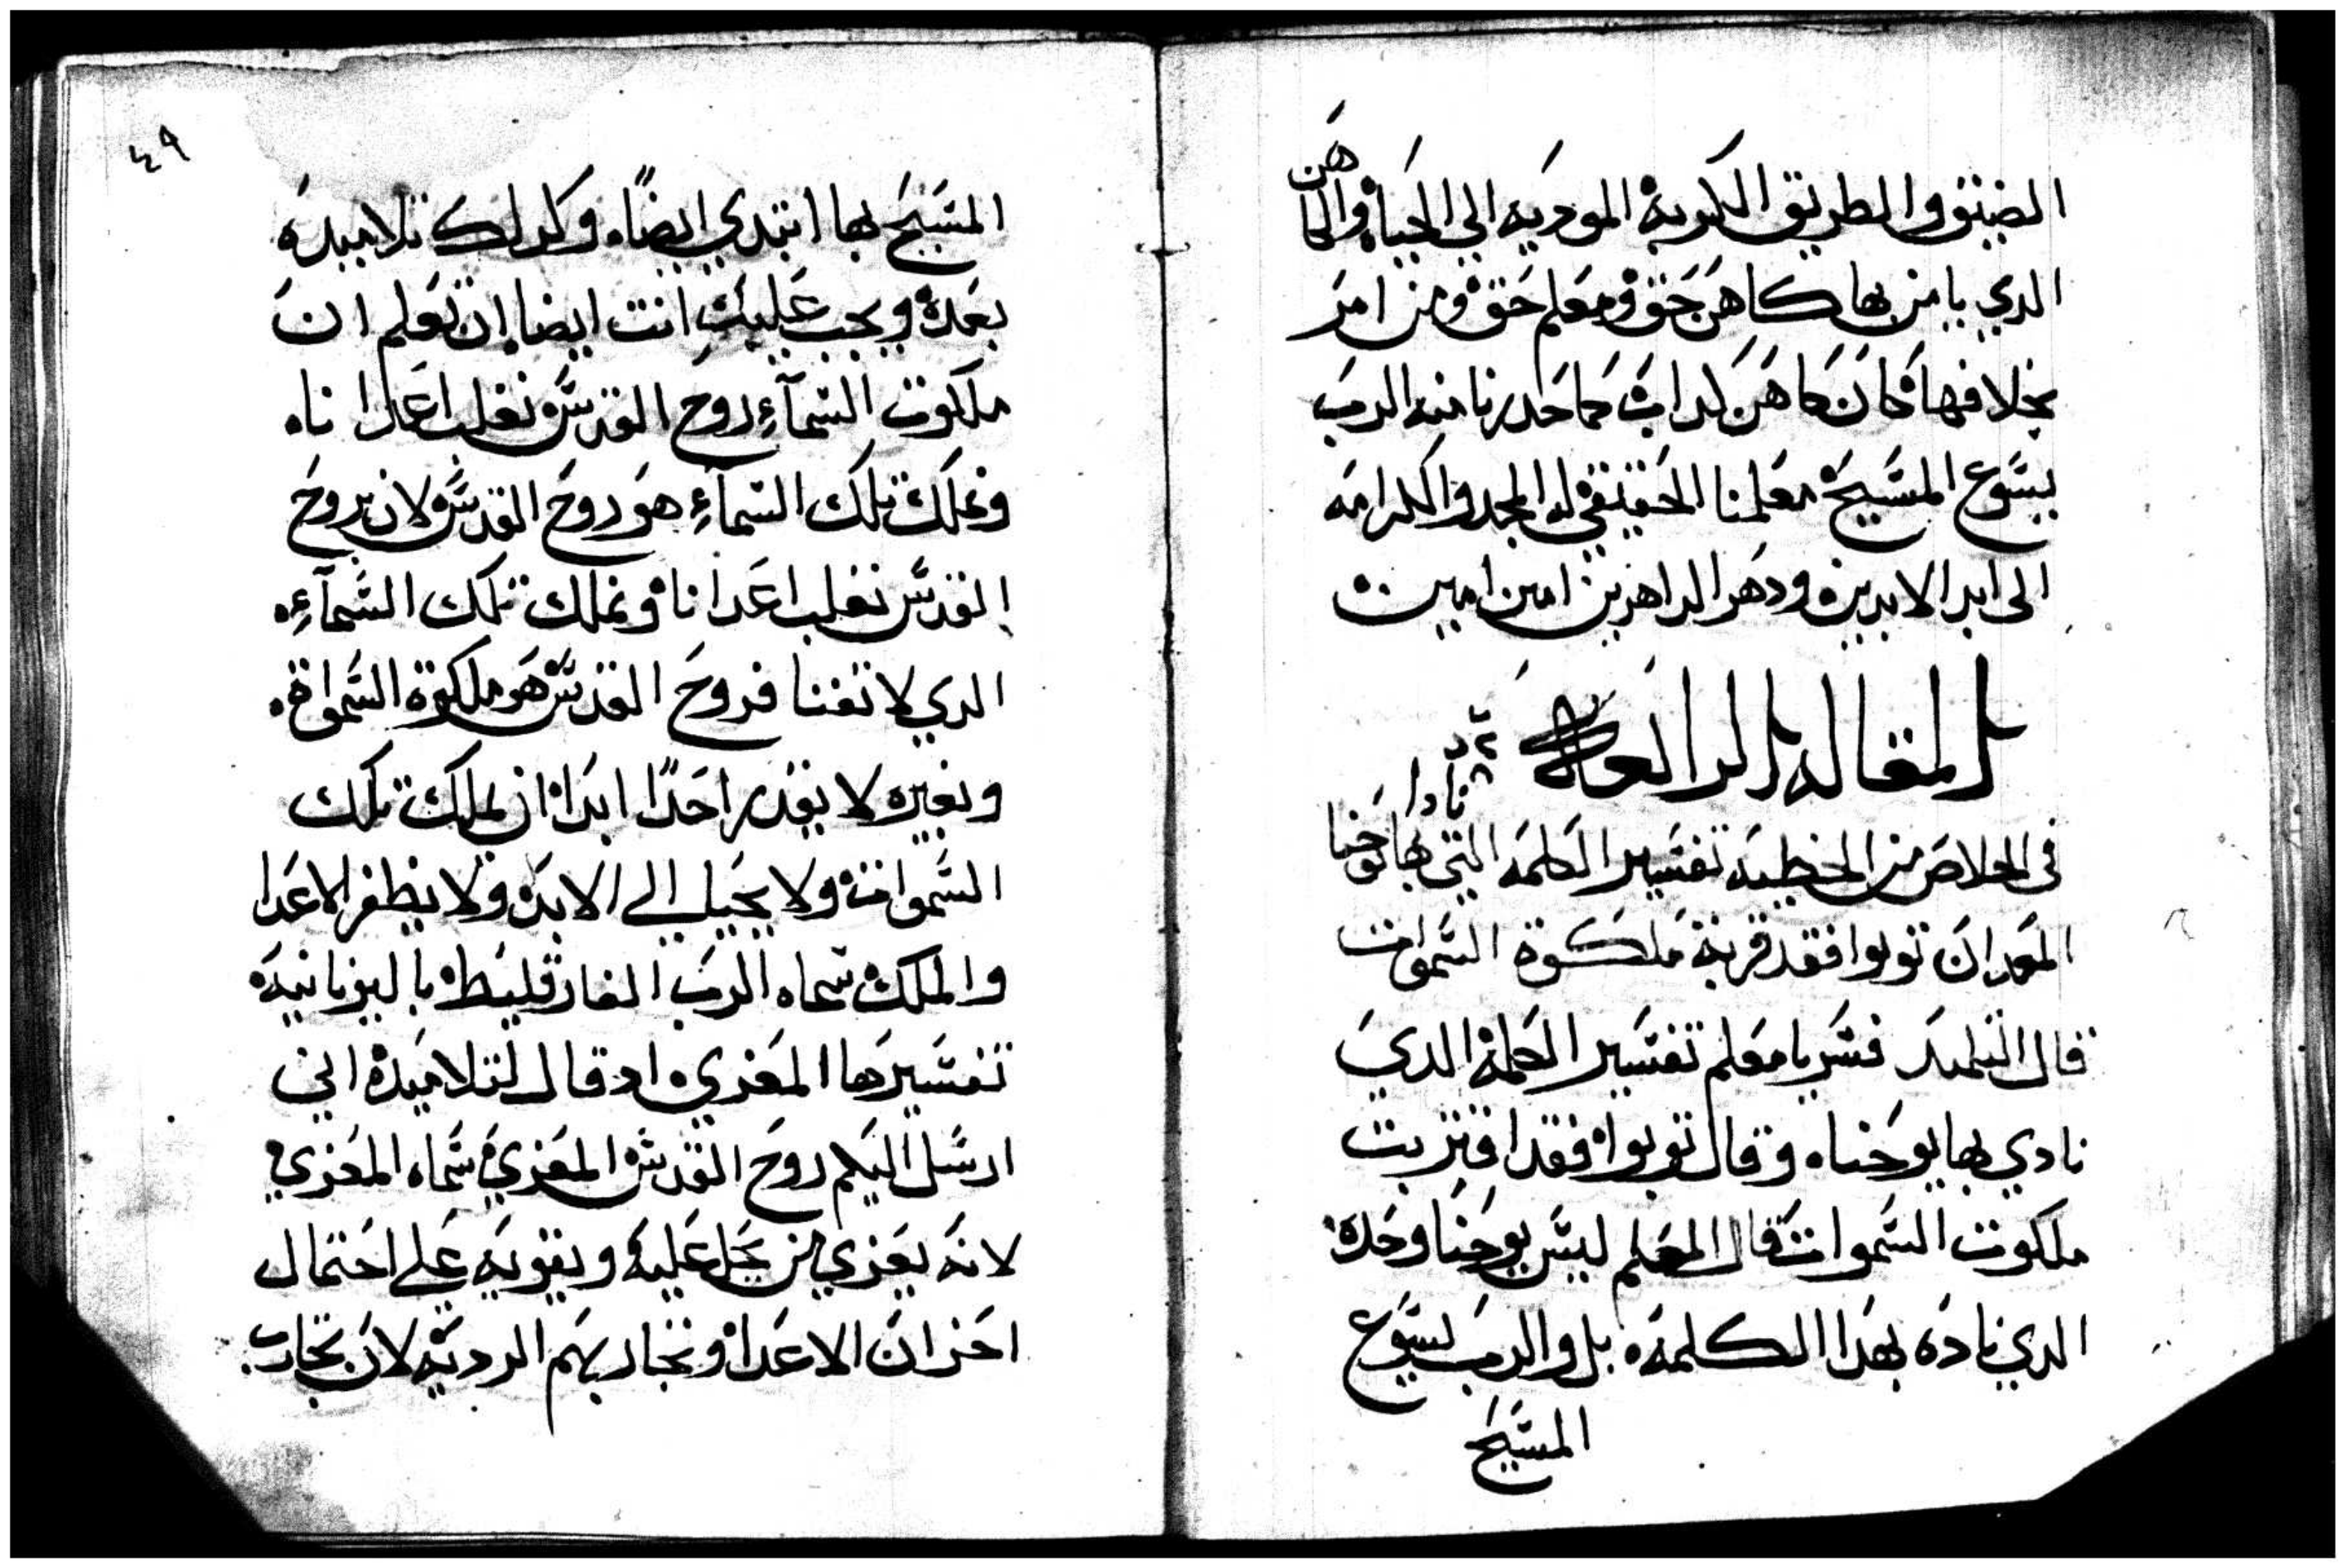 الضيق والطريق الكربة المودية الي الحياة والكاهن
الدي يامر بها كاهن حق ومعلم حق ومن امر
بخلافها كان كاهن كداب كما حدرنا منه الرب
يسوع المسيح معلمنا الحقيقي له المجد والكرامه
الى ابد الابدين ودهر الداهرين امين امين
المقاله الرابعة
في الخلاص من الخطية تفسير الكلمه التي نادا بها يوحنا
المعدان توبوا فقد قربة ملكوة السموات
قال التلميد فسر يا معلم تفسير الكلمة الدي
نادي بها يوحنا وقال توبوا فقد اقتربت
ملكوت السموات قال المعلم ليس يوحنا وحده
الدي ناده بهدا الكلمة بل والرب يسوع
المسيح
٤٩
المسيح بها ابتدي ايضًا وكدلك تلاميده
بعده ويجب عليك انت ايضا ان تعلم ان
ملكوت السمآء روح القدس نغلب اعدانا
ونملك تلك السمآء هو روح القدس ولان بروح
القدس نغلب اعدانا ونملك تلك السمآء
الدي لا تفنا فروح القدس هو ملكوة السمواة
وبغيره لا يقدر احدًا ابدا ان يملك تلك
السموات ولا يحيا الي الابد ولا يظفر الاعدا
والملك سماه الرب الفارقليط باليونانية
تفسيرها المعزي اد قال لتلاميده اني
ارسل اليكم روح القدس المعزي سماه المعزي
لانه يعزي من يحل عليه ويقويه على احتمال
احزان الاعدا وتجاربهم الردية لان تجارب